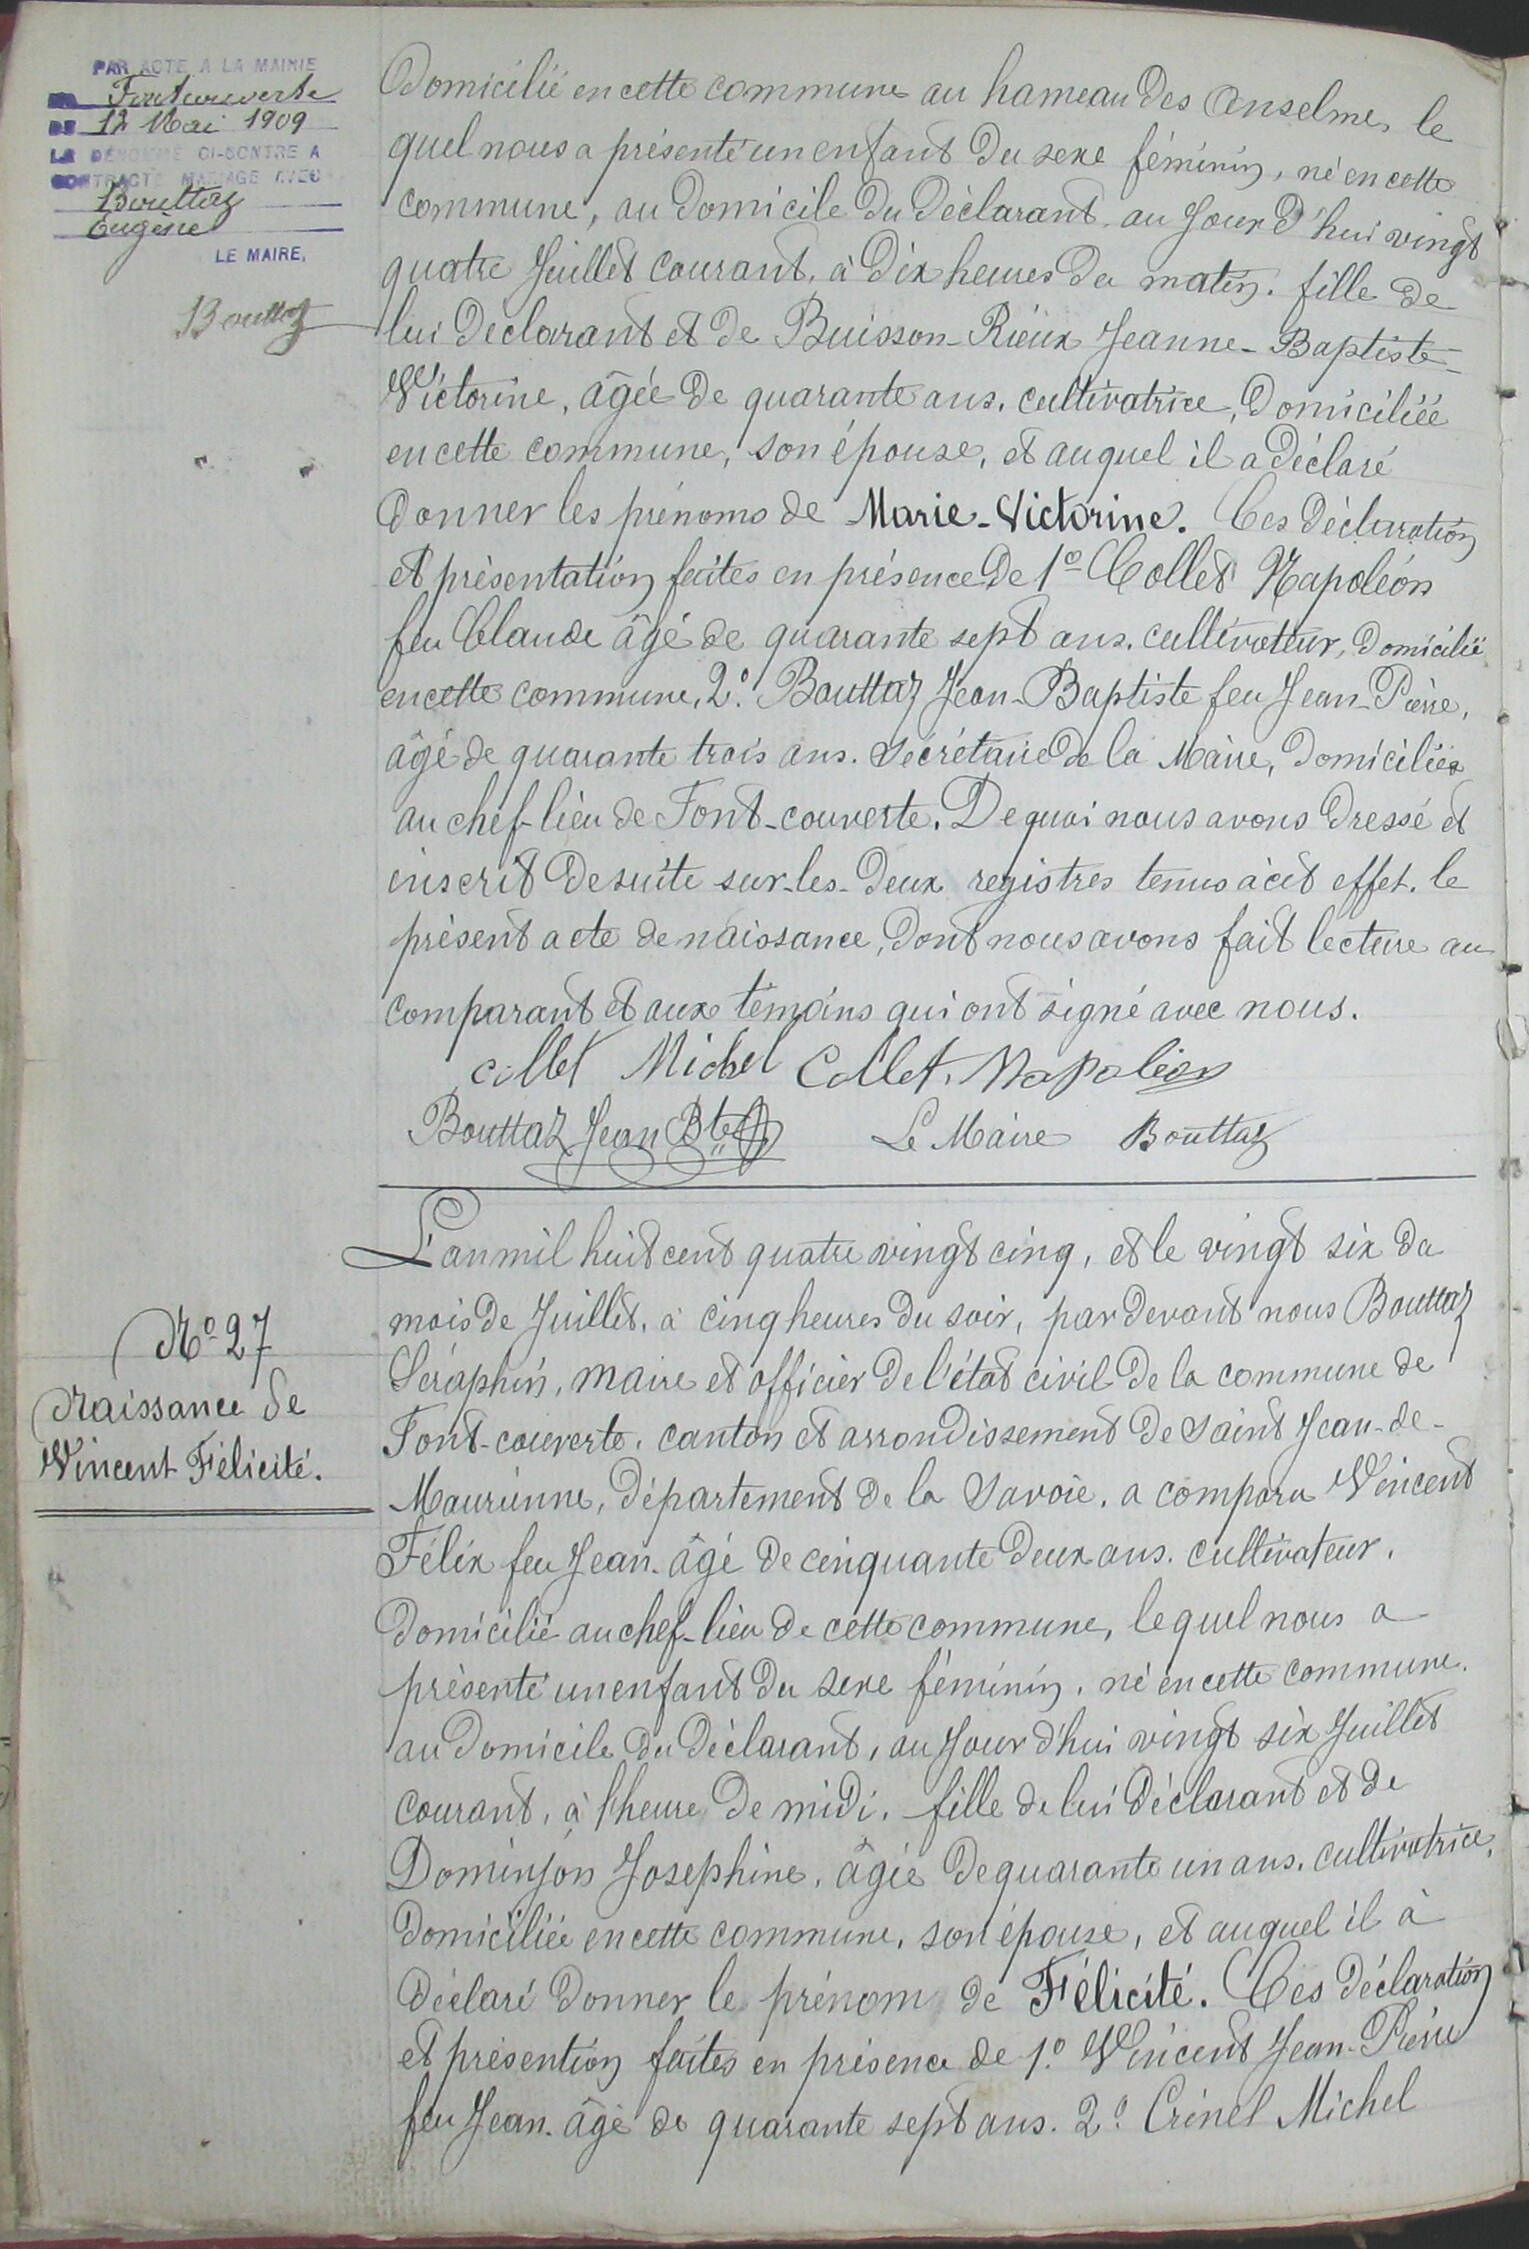 PAR ACTE A LA MAIRIE
DE Fontcouverte
DU 12 Mai 1909
LA DÉNOMMÉ CI-CONTRE A
CONTRACTÉ MARIAGE AVEC
Bouttaz
Eugène
LE MAIRE,
Bouttaz
Domicilié en cette commune au hameau des Anselme, le
quel nous a présenté un enfant du sexe féminin, né en cette
commune, au domicile du déclarant, au jour d'hui vingt
quatre Juillet courant, à dix heures du matin. fille de
lui déclarant et de Buisson-Rieux Jeanne-Baptiste-
Victorine, âgée de quarante ans, cultivatrice, domiciliée
en cette commune, son épouse, et auquel il a déclaré
donner les prénoms de Marie-Victorine. Ces déclaration
et présentation faites en présence de 1º Collet Napoléon
feu Claude âgé de quarante sept ans, cultivateur, domicilié
en cette commune, 2º. Bouttaz Jean-Baptiste feu Jean-Pierre,
âgé de quarante trois ans. Sécrétaire de la Mairie, domiciliés
au chef-lieu de Font-couverte. De quoi nous avons dressé et
inscrit de suite sur-les-deux registres tenus à cet effet, le
présent acte de naissance, dont nous avons fait lecture au
comparant et aux témoins qui ont signé avec nous.
Collet Michel Collet. Napoléon
Bouttaz Jean Bte Le Maire Bouttaz
L'an mil huit cent quatre vingt cinq, et le vingt six du
mois de Juillet, à cinq heures du soir, par devant nous Bouttaz
Séraphin, maire et officier de l'état civil de la commune de
Font-couverte, canton et arrondissement de Saint Jean-de-
Maurienne, département de la Savoie, a comparu Vincent
Félix feu Jean. âgé de cinquante deux ans. cultivateur,
domicilié au chef-lieu de cette commune, lequel nous a
présenté un enfant du sexe féminin, né en cette commune.
au domicile du déclarant, au jour d'hui vingt six Juillet
courant, à l'heure de midi, fille de lui déclarant et de
Dominjon Josephine, âgée de quarante un ans, cultivatrice,
domiciliée en cette commune, son épouse, et auquel il à
déclaré donner le prénom de Félicité. Ces déclaration
et présention faites en présence de 1º. Vincent Jean-Pierre
feu Jean. âgé de quarante sept ans. 2º. Crinel Michel
Nº 27
Naissance de
Vincent Félicité.